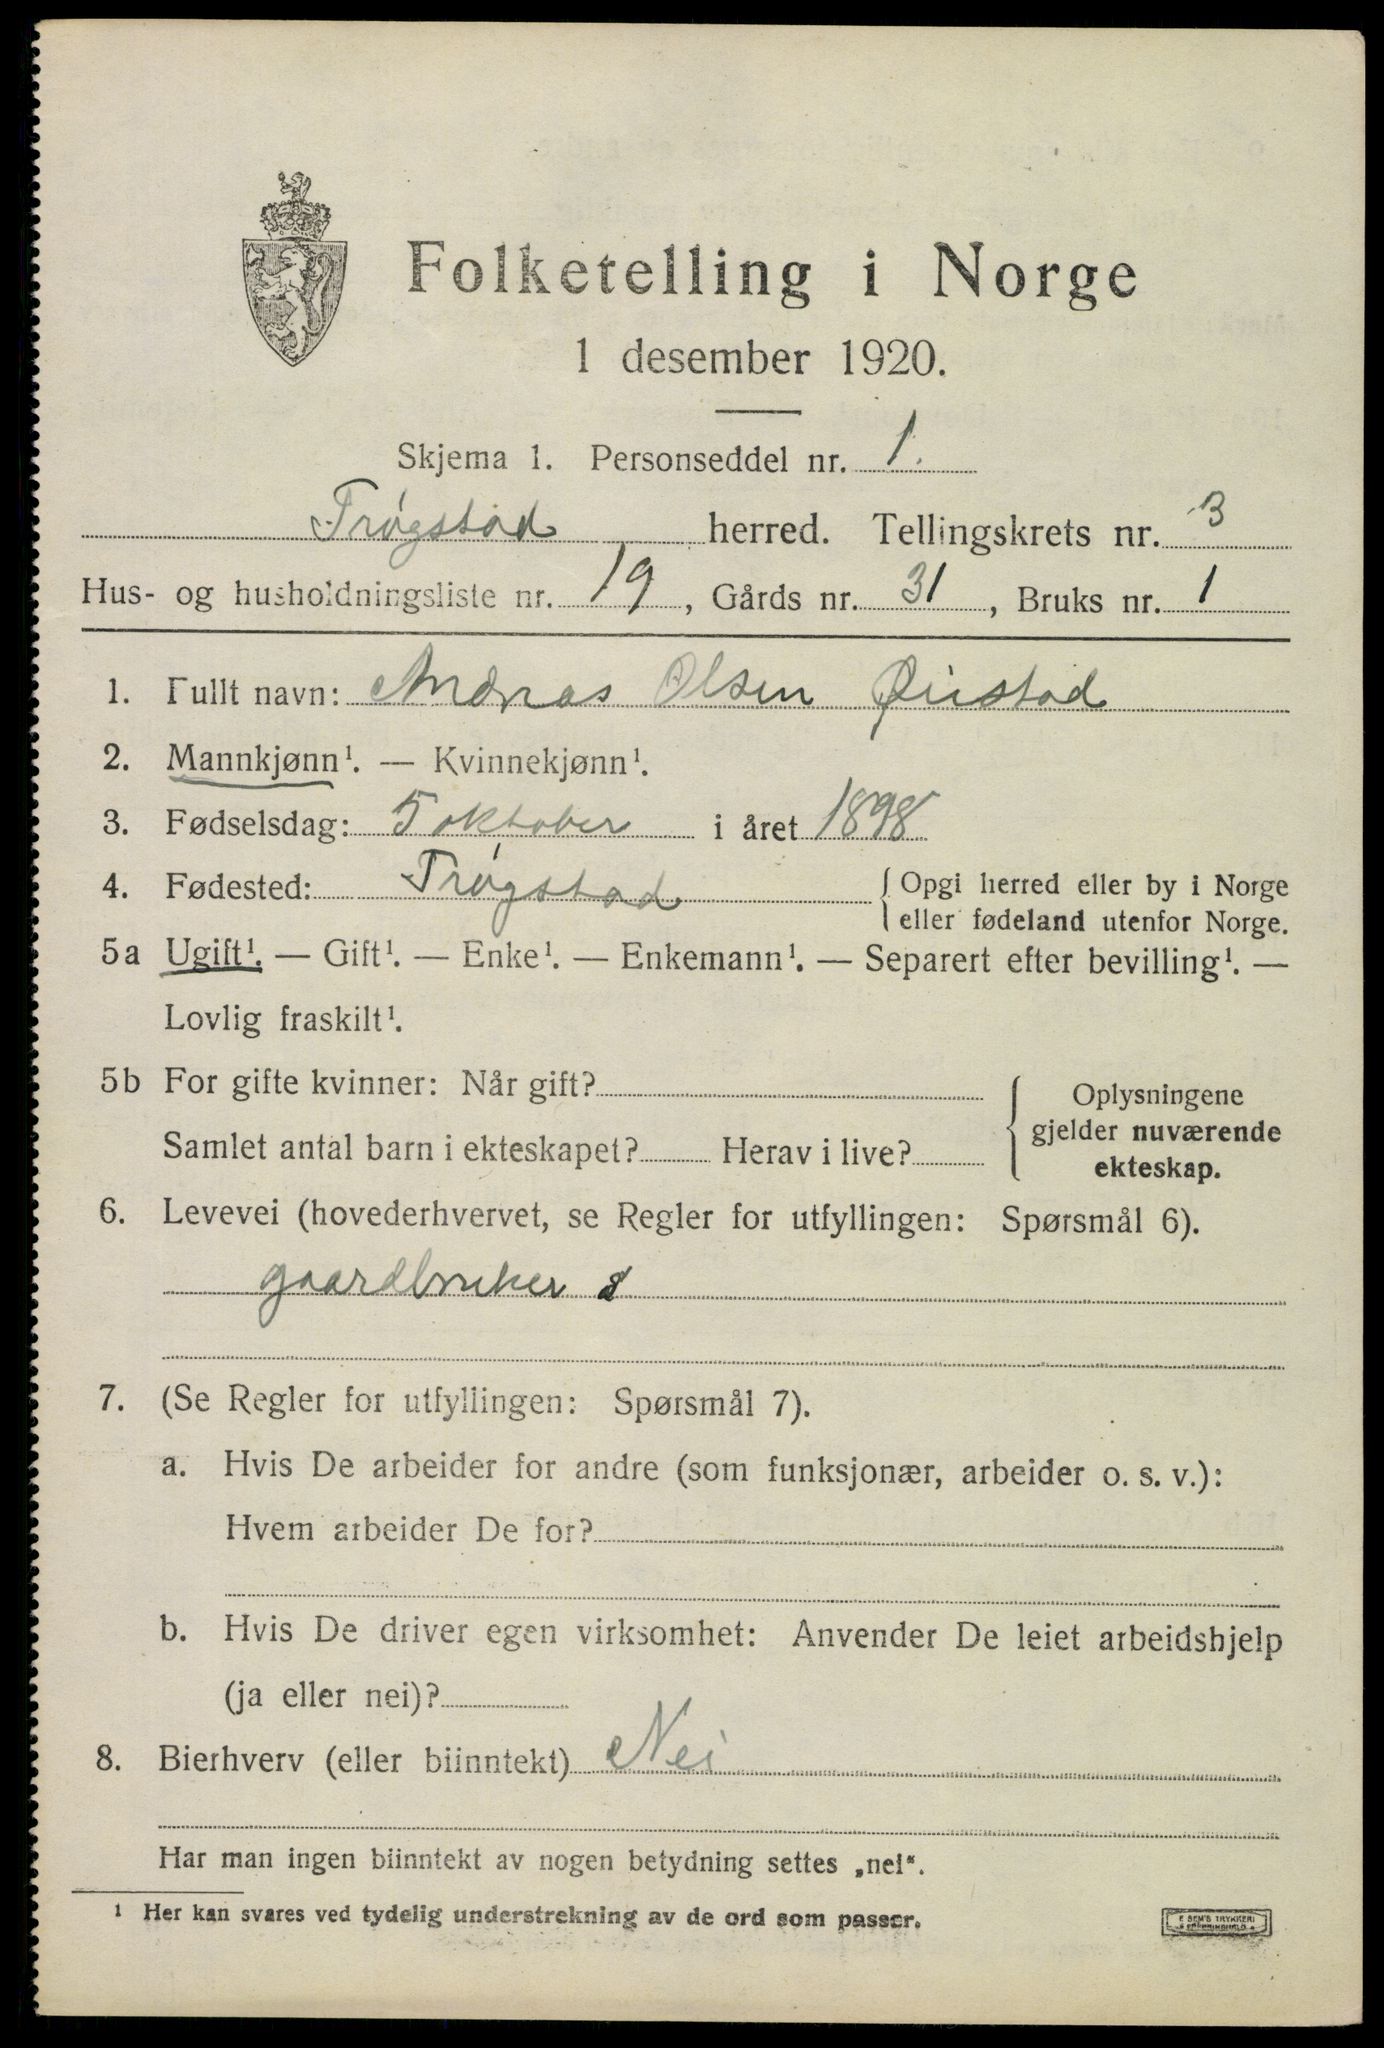 Folketelling i Norge
1 desember 1920.
Skjema 1. Personseddel nr. 1.
Trøgstad herred. Tellingskrets nr. 3
Hus- og husholdningsliste nr. 19, Gårds nr. 31, Bruks nr. 1
1. Fullt navn: Andreas Olsen Øiestad
2. Mannkjønn¹. — Kvinnekjønn¹.
3. Fødselsdag: 5 oktober i året 1898
4. Fødested: Trøgstad {Opgi herred eller by i Norge
eller fødeland utenfor Norge.
5a Ugift¹. — Gift¹. — Enke¹. — Enkemann¹. — Separert efter bevilling¹. —
Lovlig fraskilt¹.
5b For gifte kvinner: Når gift?
Samlet antal barn i ekteskapet? Herav i live?
Oplysningene
gjelder nuværende
ekteskap.
6. Levevei (hovederhvervet, se Regler for utfyllingen: Spørsmål 6).
gaardbruker s
7. (Se Regler for utfyllingen: Spørsmål 7).
a. Hvis De arbeider for andre (som funksjonær, arbeider o. s. v.):
Hvem arbeider De for?
b. Hvis De driver egen virksomhet: Anvender De leiet arbeidshjelp
(ja eller nei)?
8. Bierhverv (eller biinntekt) Nei
Har man ingen biinntekt av nogen betydning settes „nei“.
¹ Her kan svares ved tydelig understrekning av de ord som passer.
E SEM'S TRYKKERI
FREDRIKSHALD